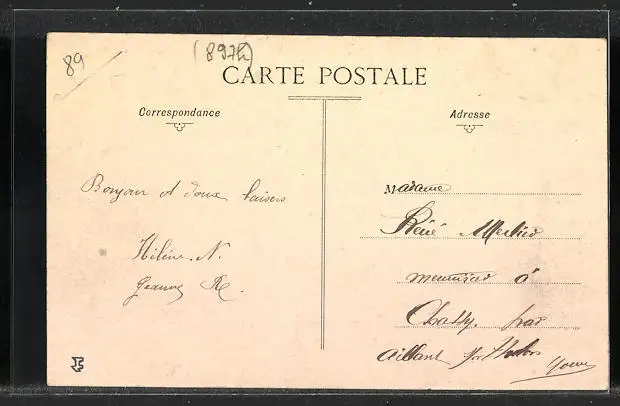 89
(897h)
CARTE POSTALE
Correspondance
Adresse
Bonjour et doux baisers
Hélène. N.
Jeanne R.
Madame
René
meunier à
Chassy, par
Aillant sur Tholon
Yonne